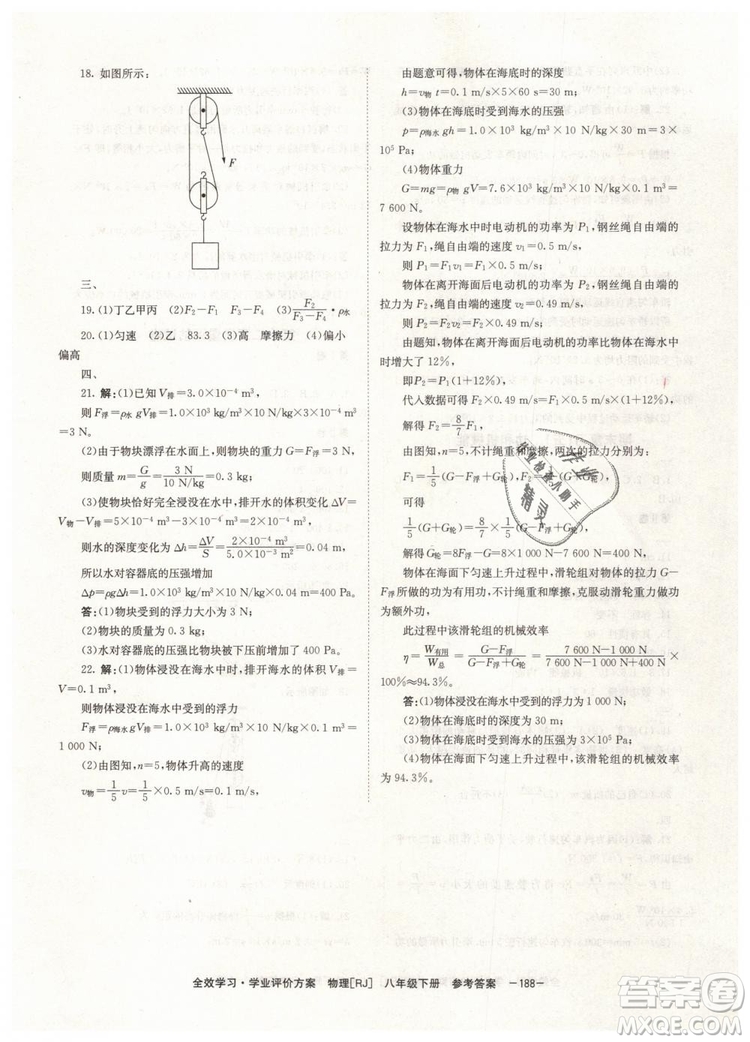 18. 如图所示:
F
三、
19. (1)丁乙甲丙 (2)F₂−F₁ F₃−F₄ (3)F₂/(F₃−F₄)·ρ水
20. (1)匀速 (2)乙 83.3 (3)高 摩擦力 (4)偏小
偏高
四、
21. 解:(1)已知 V排=3.0×10⁻⁴ m³,
则 F浮=ρ水 gV排=1.0×10³ kg/m³×10 N/kg×3.0×10⁻⁴
m³=3 N。
(2)由于物块漂浮在水面上,则物块的重力 G=F浮=3 N,
则质量 m=G/g=3 N/10 N/kg=0.3 kg。
(3)使物块恰好完全浸没在水中,排开水的体积变化 ΔV=
V物−V排=5×10⁻⁴ m³−3×10⁻⁴ m³=2×10⁻⁴ m³,
则水的深度变化为 Δh=ΔV/S=2×10⁻⁴ m³/5.0×10⁻³ m²=0.04 m,
所以水对容器底的压强增加
Δp=ρgΔh=1.0×10³ kg/m³×10 N/kg×0.04 m=400 Pa。
答:(1)物块受到的浮力大小为 3 N;
(2)物块的质量为 0.3 kg;
(3)水对容器底的压强比物块被下压前增加了 400 Pa。
22. 解:(1)物体浸没在海水中时,排开海水的体积 V排=
V=0.1 m³,
则物体浸没在海水中受到的浮力
F浮=ρ海水 gV排=1.0×10³ kg/m³×10 N/kg×0.1 m³=
1 000 N;
(2)由图知,n=5,物体升高的速度
v物=1/5 v=1/5×0.5 m/s=0.1 m/s,
由题意可得,物体在海底时的深度
h=v物 t=0.1 m/s×5×60 s=30 m;
(3)物体在海底时受到海水的压强
p=ρ海水 gh=1.0×10³ kg/m³×10 N/kg×30 m=3×
10⁵ Pa;
(4)物体重力
G=mg=ρ物 gV=7.6×10³ kg/m³×10 N/kg×0.1 m³=
7 600 N。
设物体在海水中时电动机的功率为 P₁,钢丝绳自由端的
拉力为 F₁,绳自由端的速度 v₁=0.5 m/s,
则 P₁=F₁v₁=F₁×0.5 m/s;
物体在离开海面后电动机的功率为 P₂,钢丝绳自由端的
拉力为 F₂,绳自由端的速度 v₂=0.49 m/s,
则 P₂=F₂v₂=F₂×0.49 m/s;
由题知,物体在离开海面后电动机的功率比物体在海水中
时增大了 12%,
即P₂=P₁(1+12%),
代入数据可得 F₂×0.49 m/s=F₁×0.5 m/s(1+12%),
解得 F₂=8/7F₁,
由图知,n=5,不计绳重和摩擦,两次的拉力分别为
F₁=1/5(G−F浮+G轮),F₂=1/5(G+G轮),
可得
1/5(G+G轮)=8/7×1/5(G−F浮+G轮),
解得 G轮=8F浮−G=8×1 000 N−7 600 N=400 N,
物体在海面下匀速上升过程中,滑轮组对物体的拉力 G−
F浮 做功为有用功,不计绳重和摩擦,克服动滑轮重力做功
为额外功,
此过程中该滑轮组的机械效率
η=W有用/W总=(G−F浮)/(G−F浮+G轮)=(7 600 N−1 000 N)/(7 600 N−1 000 N+400 N)×
100%≈94.3%。
答:(1)物体浸没在海水中受到的浮力为 1 000 N;
(2)物体在海底时的深度为 30 m;
(3)物体在海底时受到海水的压强为 3×10⁵ Pa;
(4)物体在海面下匀速上升过程中,该滑轮组的机械效率
为 94.3%。
作业
作业检查小助手
精灵
全效学习·学业评价方案 物理[RJ] 八年级下册 参考答案 −188−
答案圈
MXQE.COM